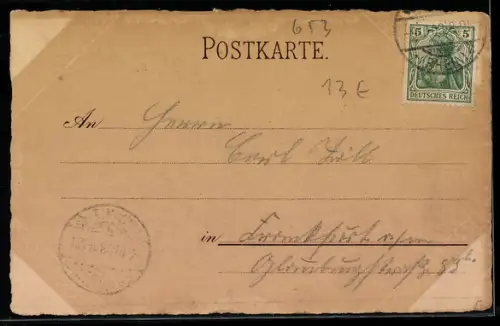 653
POSTKARTE.
13 E
5 5
DEUTSCHES REICH
An Herrn
Carl
in Frankfurt a/m
Glauburgstraße 83